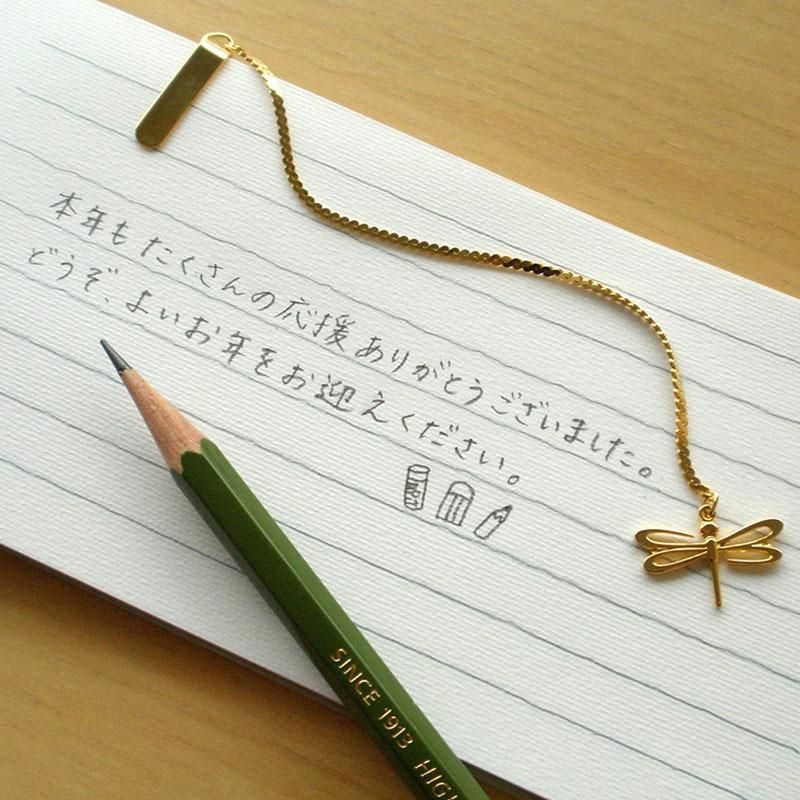 本年もたくさんの応援ありがとうございました。
どうぞ、よいお年をお迎えください。
SINCE 1913 HIGH